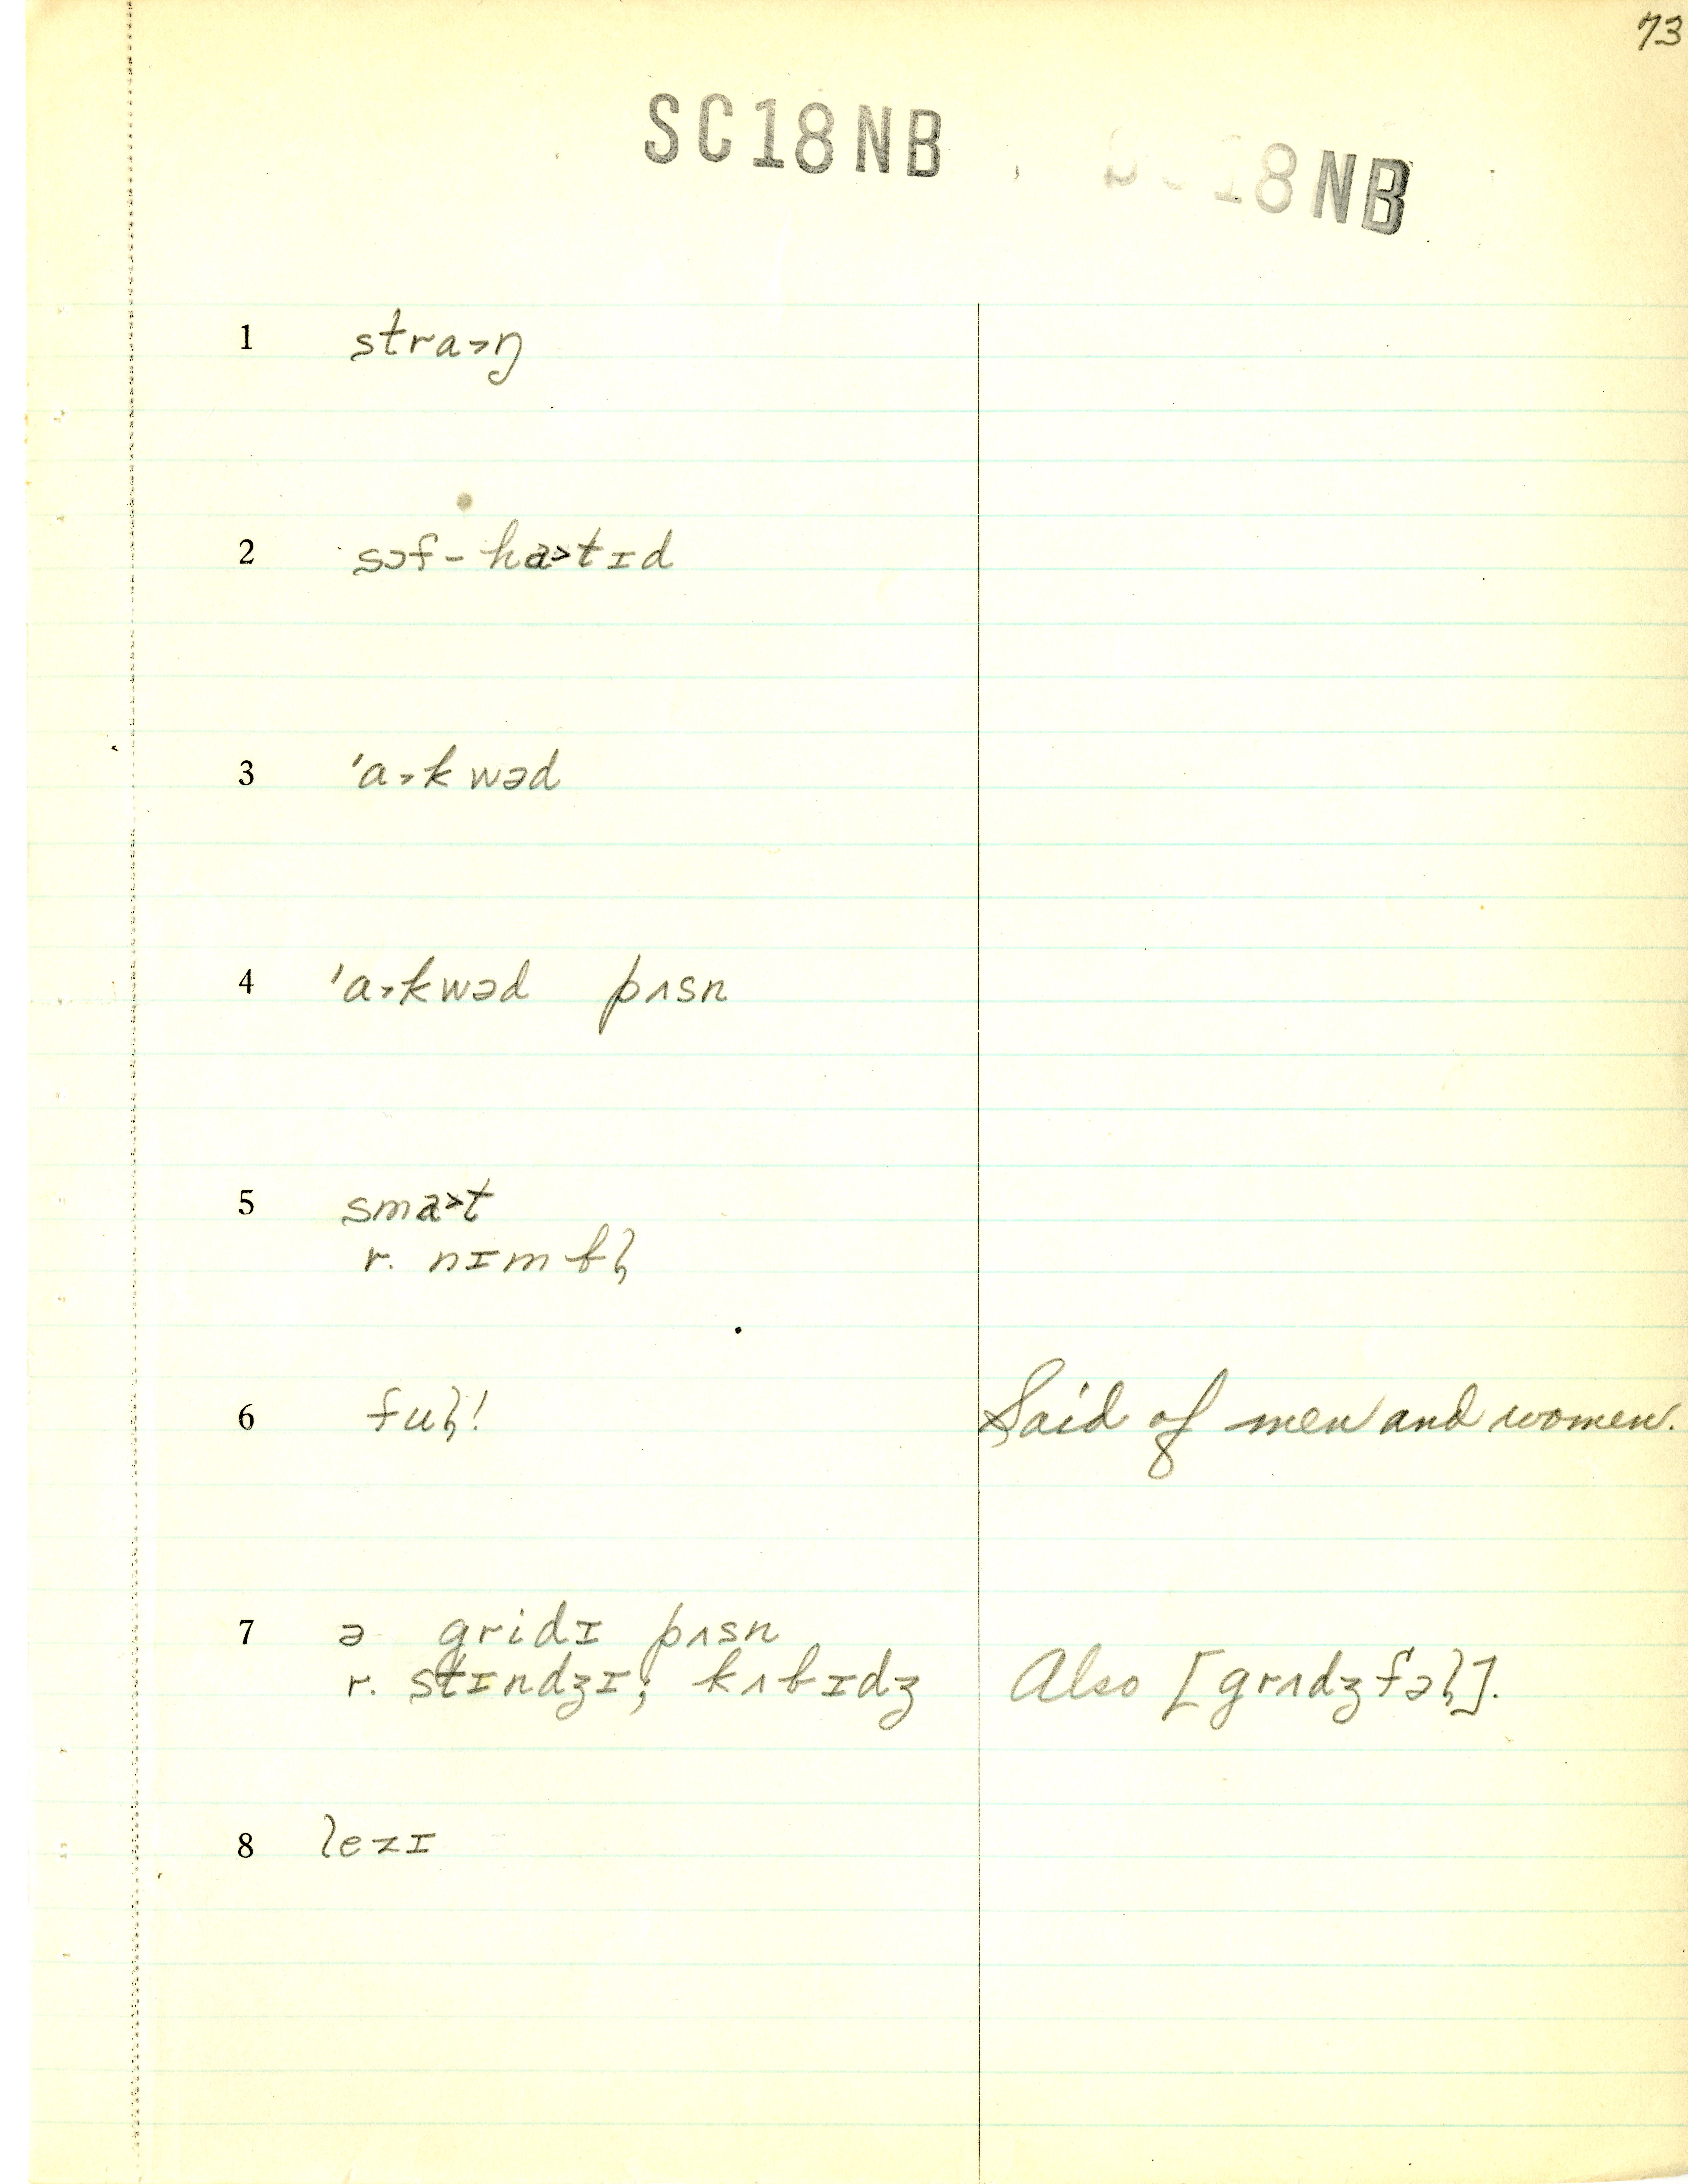 73
SC18NB
18NB
1 stra˃ŋ
2 sɔf-ha˃tɪd
3 'a˃kwəd
4 'a˃kwəd pʌsn
5 sma˃t
r. nɪmbl̩
6 ful̩! Said of men and women.
7 ə gridɪ pʌsn
r. stɪndʒɪ; kʌbɪdʒ Also [grʌdʒfəl̩].
8 lezɪ